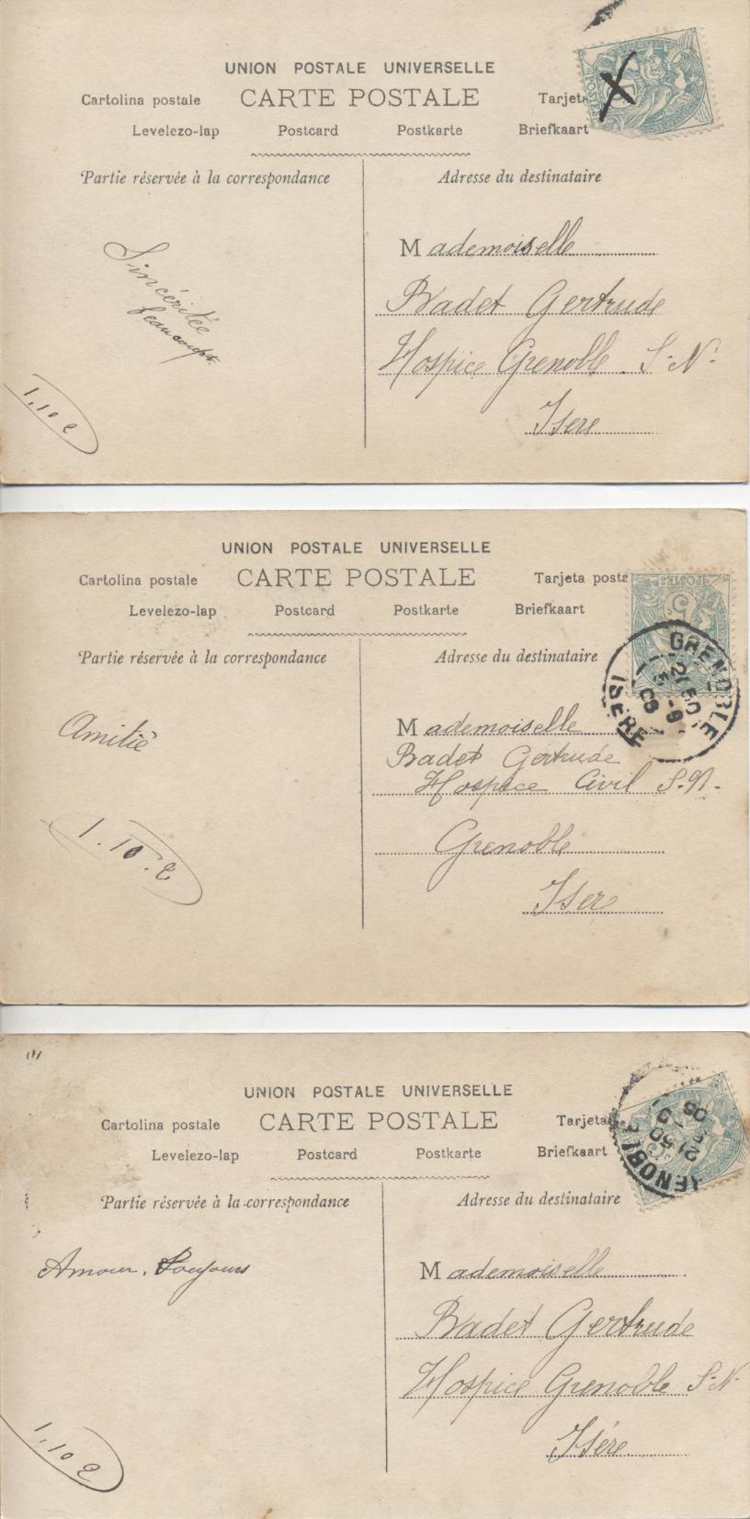 UNION POSTALE UNIVERSELLE
Cartolina postale CARTE POSTALE Tarjeta
Levelezo-lap Postcard Postkarte Briefkaart
Partie réservée à la correspondance
Adresse du destinataire
Sincéritée
beaucoups
1.10.2
Mademoiselle
Badet Gertrude
Hospice Grenoble S-N.
Isere
UNION POSTALE UNIVERSELLE
Cartolina postale CARTE POSTALE Tarjeta posta
Levelezo-lap Postcard Postkarte Briefkaart
POSTES
5
GRENOBLE
21 50
ISERE
Partie réservée à la correspondance
Adresse du destinataire
Amitié
1.10.2
Mademoiselle
Badet Gertrude
Hospice Civil S.N.
Grenoble
Isere
UNION POSTALE UNIVERSELLE
Cartolina postale CARTE POSTALE Tarjeta
Levelezo-lap Postcard Postkarte Briefkaart
21 50
Partie réservée à la correspondance
Adresse du destinataire
Amour. Toujours
1.10 2
Mademoiselle
Badet Gertrude
Hospice Grenoble S-N.
Isére